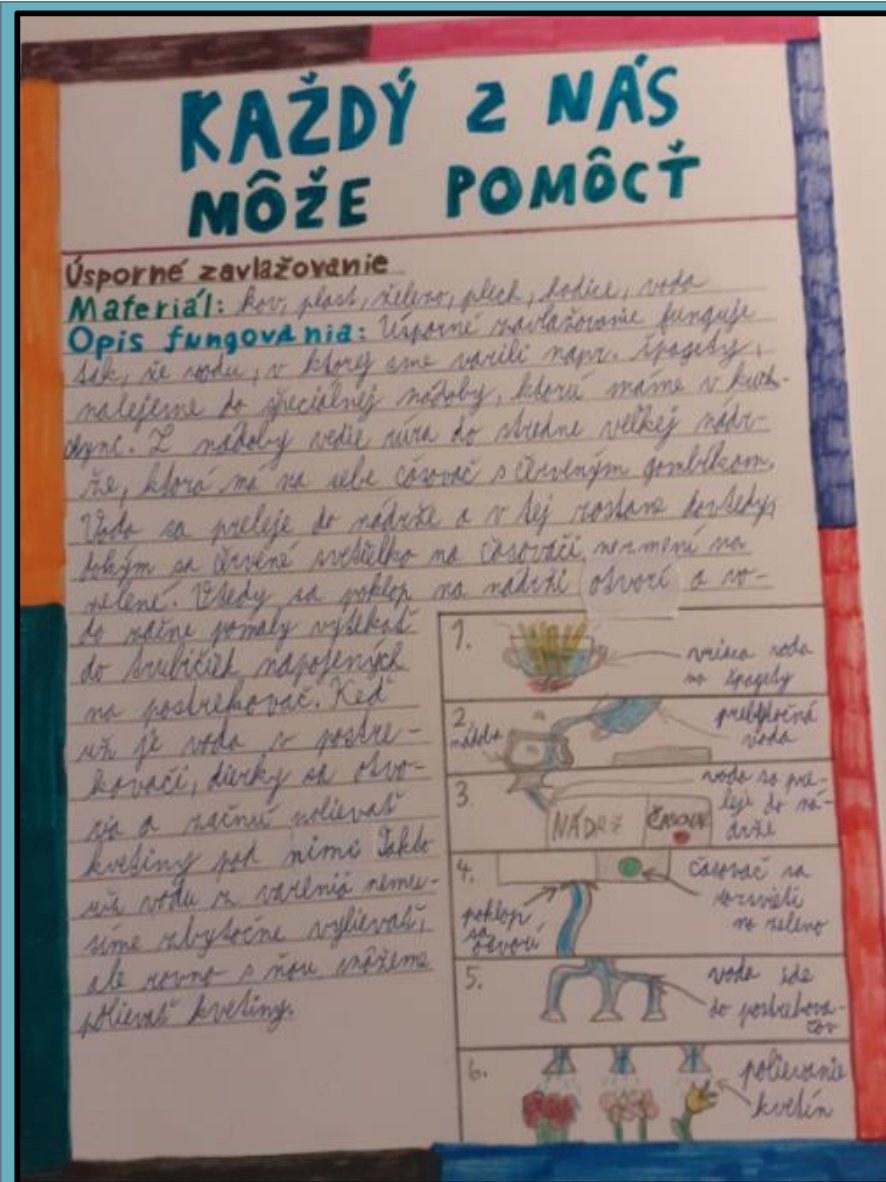 KAŽDÝ Z NÁS
MÔŽE POMÔCŤ
Úsporné zavlažovanie
Materiál: kov, plast, železo, plech, hadice, voda
Opis fungovania: Úsporné zavlažovanie funguje
tak, že vodu, v ktorej sme varili napr. špagety,
nalejeme do špeciálnej nádoby, ktorú máme v kuch-
yni. Z nádoby vedie rúra do stredne veľkej nádr-
že, ktorá má na sebe časovač s červeným gombíkom.
Voda sa preleje do nádrže a v tej zostane dovtedy,
dokým sa červené svetielko na časovači nezmení na
zelené. Vtedy sa poklop na nádrži otvorí a vo-
da začne pomaly vytekať
do trubičiek napojených
na postrekovač. Keď
už je voda v postre-
kovači, dierky sa otvo-
ria a začnú polievať
kvetiny pod nimi. Takto
už vodu z varenia nemu-
síme zbytočne vylievať,
ale rovno s ňou môžeme
polievať kvetiny.
1.
vriaca voda
na špagety
2
nádoba
prebytočná
voda
3.
NÁDRŽ
ČASOVAČ
voda sa pre-
leje do ná-
drže
4.
poklop
sa
otvorí
časovač sa
rozsvieti
na zeleno
5.
voda ide
do postrekova-
čov
6.
polievanie
kvetín